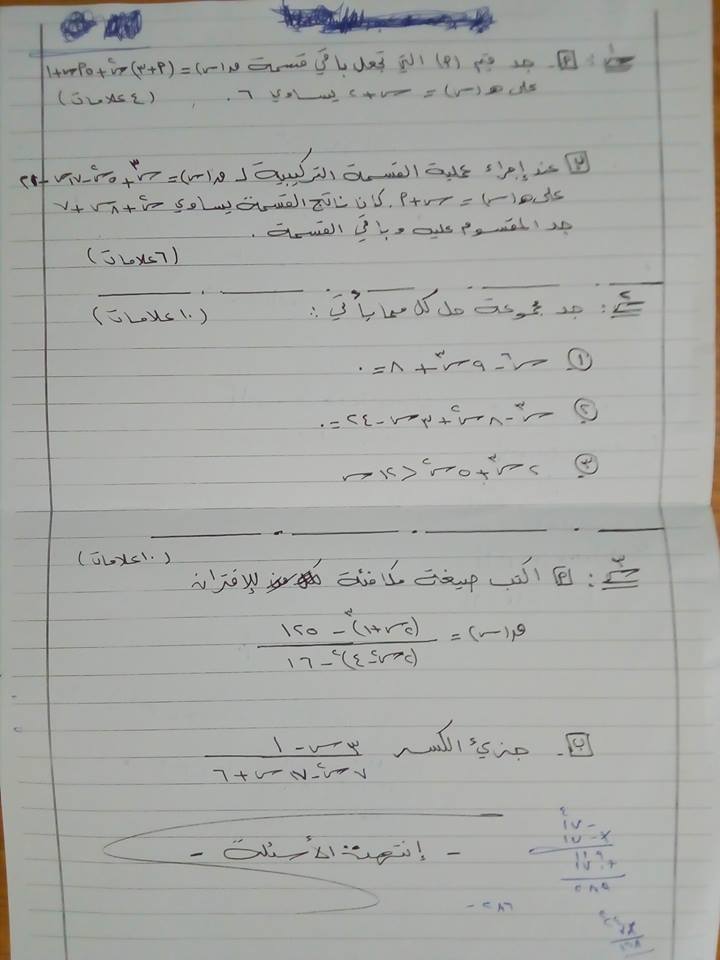 س١: أ- جد قيم (أ) التي تجعل باقي قسمة ق(س) = (أ+٣)س٢ + ٥أس + ١
على هـ(س) = س+٢ يساوي ٦. (٤ علامات)
ب عند إجراء عملية القسمة التركيبية لـ ق(س) = س٣ + ٥س٢ - ١٧س - ٢١
على هـ(س) = س+أ، كان ناتج القسمة يساوي س٢ + ٨س + ٧
جد المقسوم عليه وباقي القسمة.
(٦ علامات)
س٢: جد مجموعة حل كل مما يأتي: (١٠ علامات)
١) س٦ - ٩س٣ + ٨ = ٠
٢) س٣ - ٨س٢ + ٣س - ٢٤ = ٠
٣) ٢س٣ + ٥س٢ < ١٢س
(١٠ علامات)
س٣: أ اكتب صيغة مكافئة للإقتران
ق(س) = (٢س+١)٣ - ١٢٥
(٢س٢-٤)٢ - ١٦
ب- جزيء الكسر ٣س - ١
٧س٢ - ١٧س + ٦
- إنتهت الأسئلة -